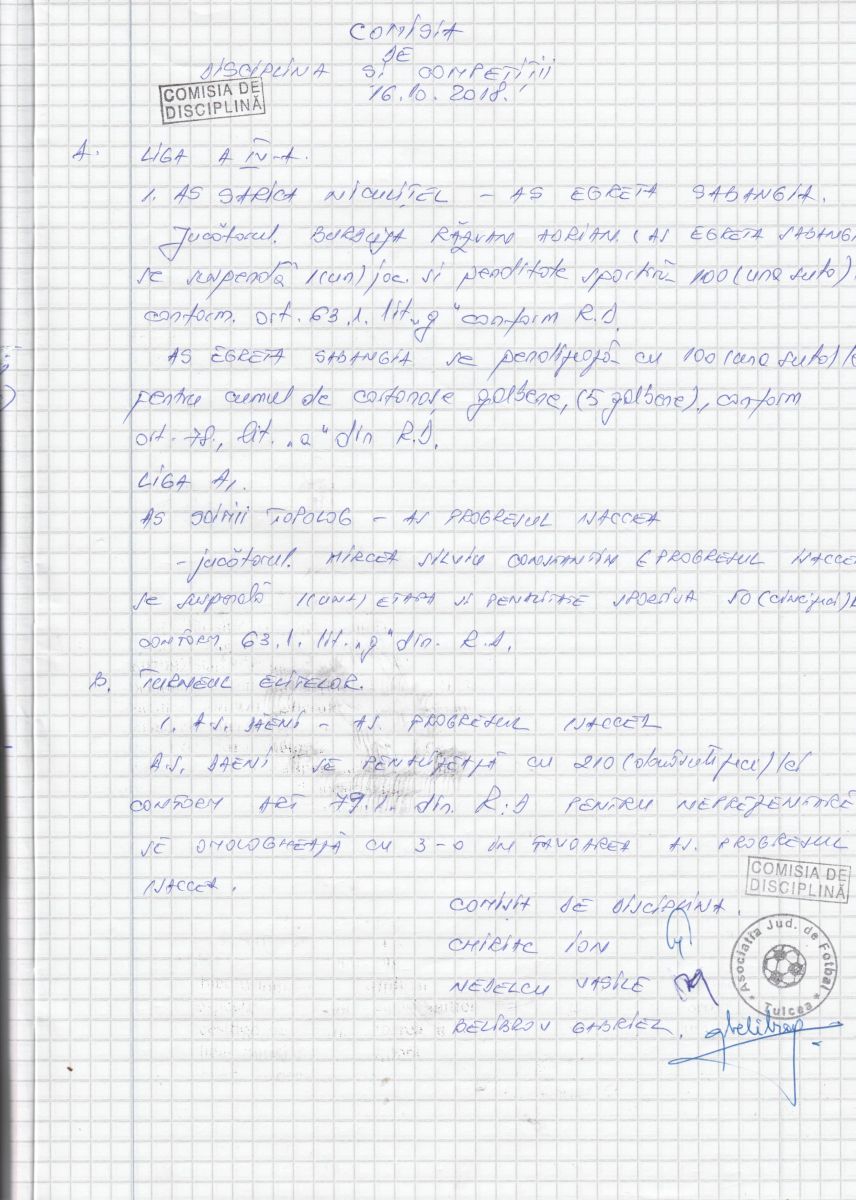 COMISIA
DE
DISCIPLINA SI COMPETITII
COMISIA DE
DISCIPLINĂ
16.10.2018.
A. LIGA A IV-A.
1. AS SARICA NICULIȚEL - AS EGRETA SABANGIA.
Jucătorul. BURDUJA RĂZVAN ADRIAN. (AS EGRETA SABANGI
se suspendă 1(un) joc. si penalitate sportivă 100 (una suta)
conform. art. 63.1. lit. „g" conform R.D.
AS EGRETA SABANGIA se penalizează cu 100 (una suta) l
pentru cumul de cartonașe galbene, (5 galbene)., conform
art. 78., lit. „a" din R.D.
LIGA A1.
AS SOIMII TOPOLOG - AS PROGRESUL ISACCEA
- jucătorul. MIRCEA SILVIU CONSTANTIN (PROGRESUL ISACCE
se suspendă 1(una) ETAPA SI PENALITATE SPORTIVA 50 (cincizeci) l
conform. 63.1. lit. „g" din. R.D.
B. TURNEUL ELITELOR.
1. A.S. DAENI - AS. PROGRESUL ISACCEA
A.S. DAENI SE PENALIZEAZĂ CU 210 (douăsutizece) lei
CONFORM ART 79.1. din. R.D PENTRU NEPREZENTARE
SE OMOLOGHEAZĂ CU 3-0 IN FAVOAREA AS. PROGRESUL
ISACCEA.
COMISIA DE
DISCIPLINĂ
COMISIA DE DISCIPLINA.
CHIRIAC ION
NEDELCU VASILE
BELIBROV GABRIEL. gbelibrov
Asociatia Jud. de Fotbal
Tulcea